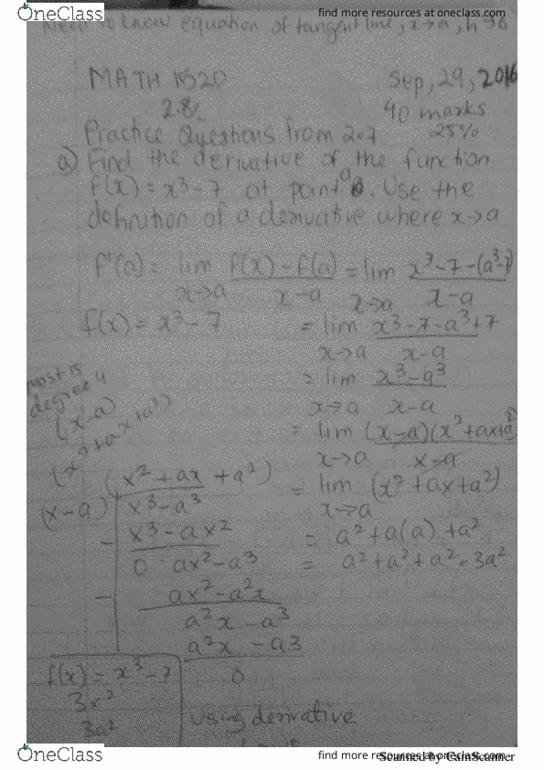 OneClass
find more resources at oneclass.com
Need to know equation of tangent line, x→a, h→0
MATH 1520 Sep, 29, 2016
2.8 40 marks
Practice Questions from 2.7 25%
a) Find the derivative of the function
f(x) = x³-7 at point a. Use the
definition of a derivative where x→a
f'(a) = lim x→a f(x) - f(a) / x-a = lim x→a x³-7-(a³-7) / x-a
f(x) = x³-7 = lim x→a x³-7-a³+7 / x-a
= lim x→a x³-a³ / x-a
most is
degree 4
(x-a)
(x²+ax+a²)
= lim x→a (x-a)(x²+ax+a²) / x-a
= lim x→a (x²+ax+a²)
= a²+a(a)+a²
= a²+a²+a² = 3a²
(x²+ax+a²)
(x-a) x³-a³
- x³-ax²
0 ax²-a³
- ax²-a²x
a²x-a³
a²x-a3
0
f(x) = x³-7
3x²
3a²
using derivative
OneClass
find more resources at oneclass.com
Scanned by CamScanner